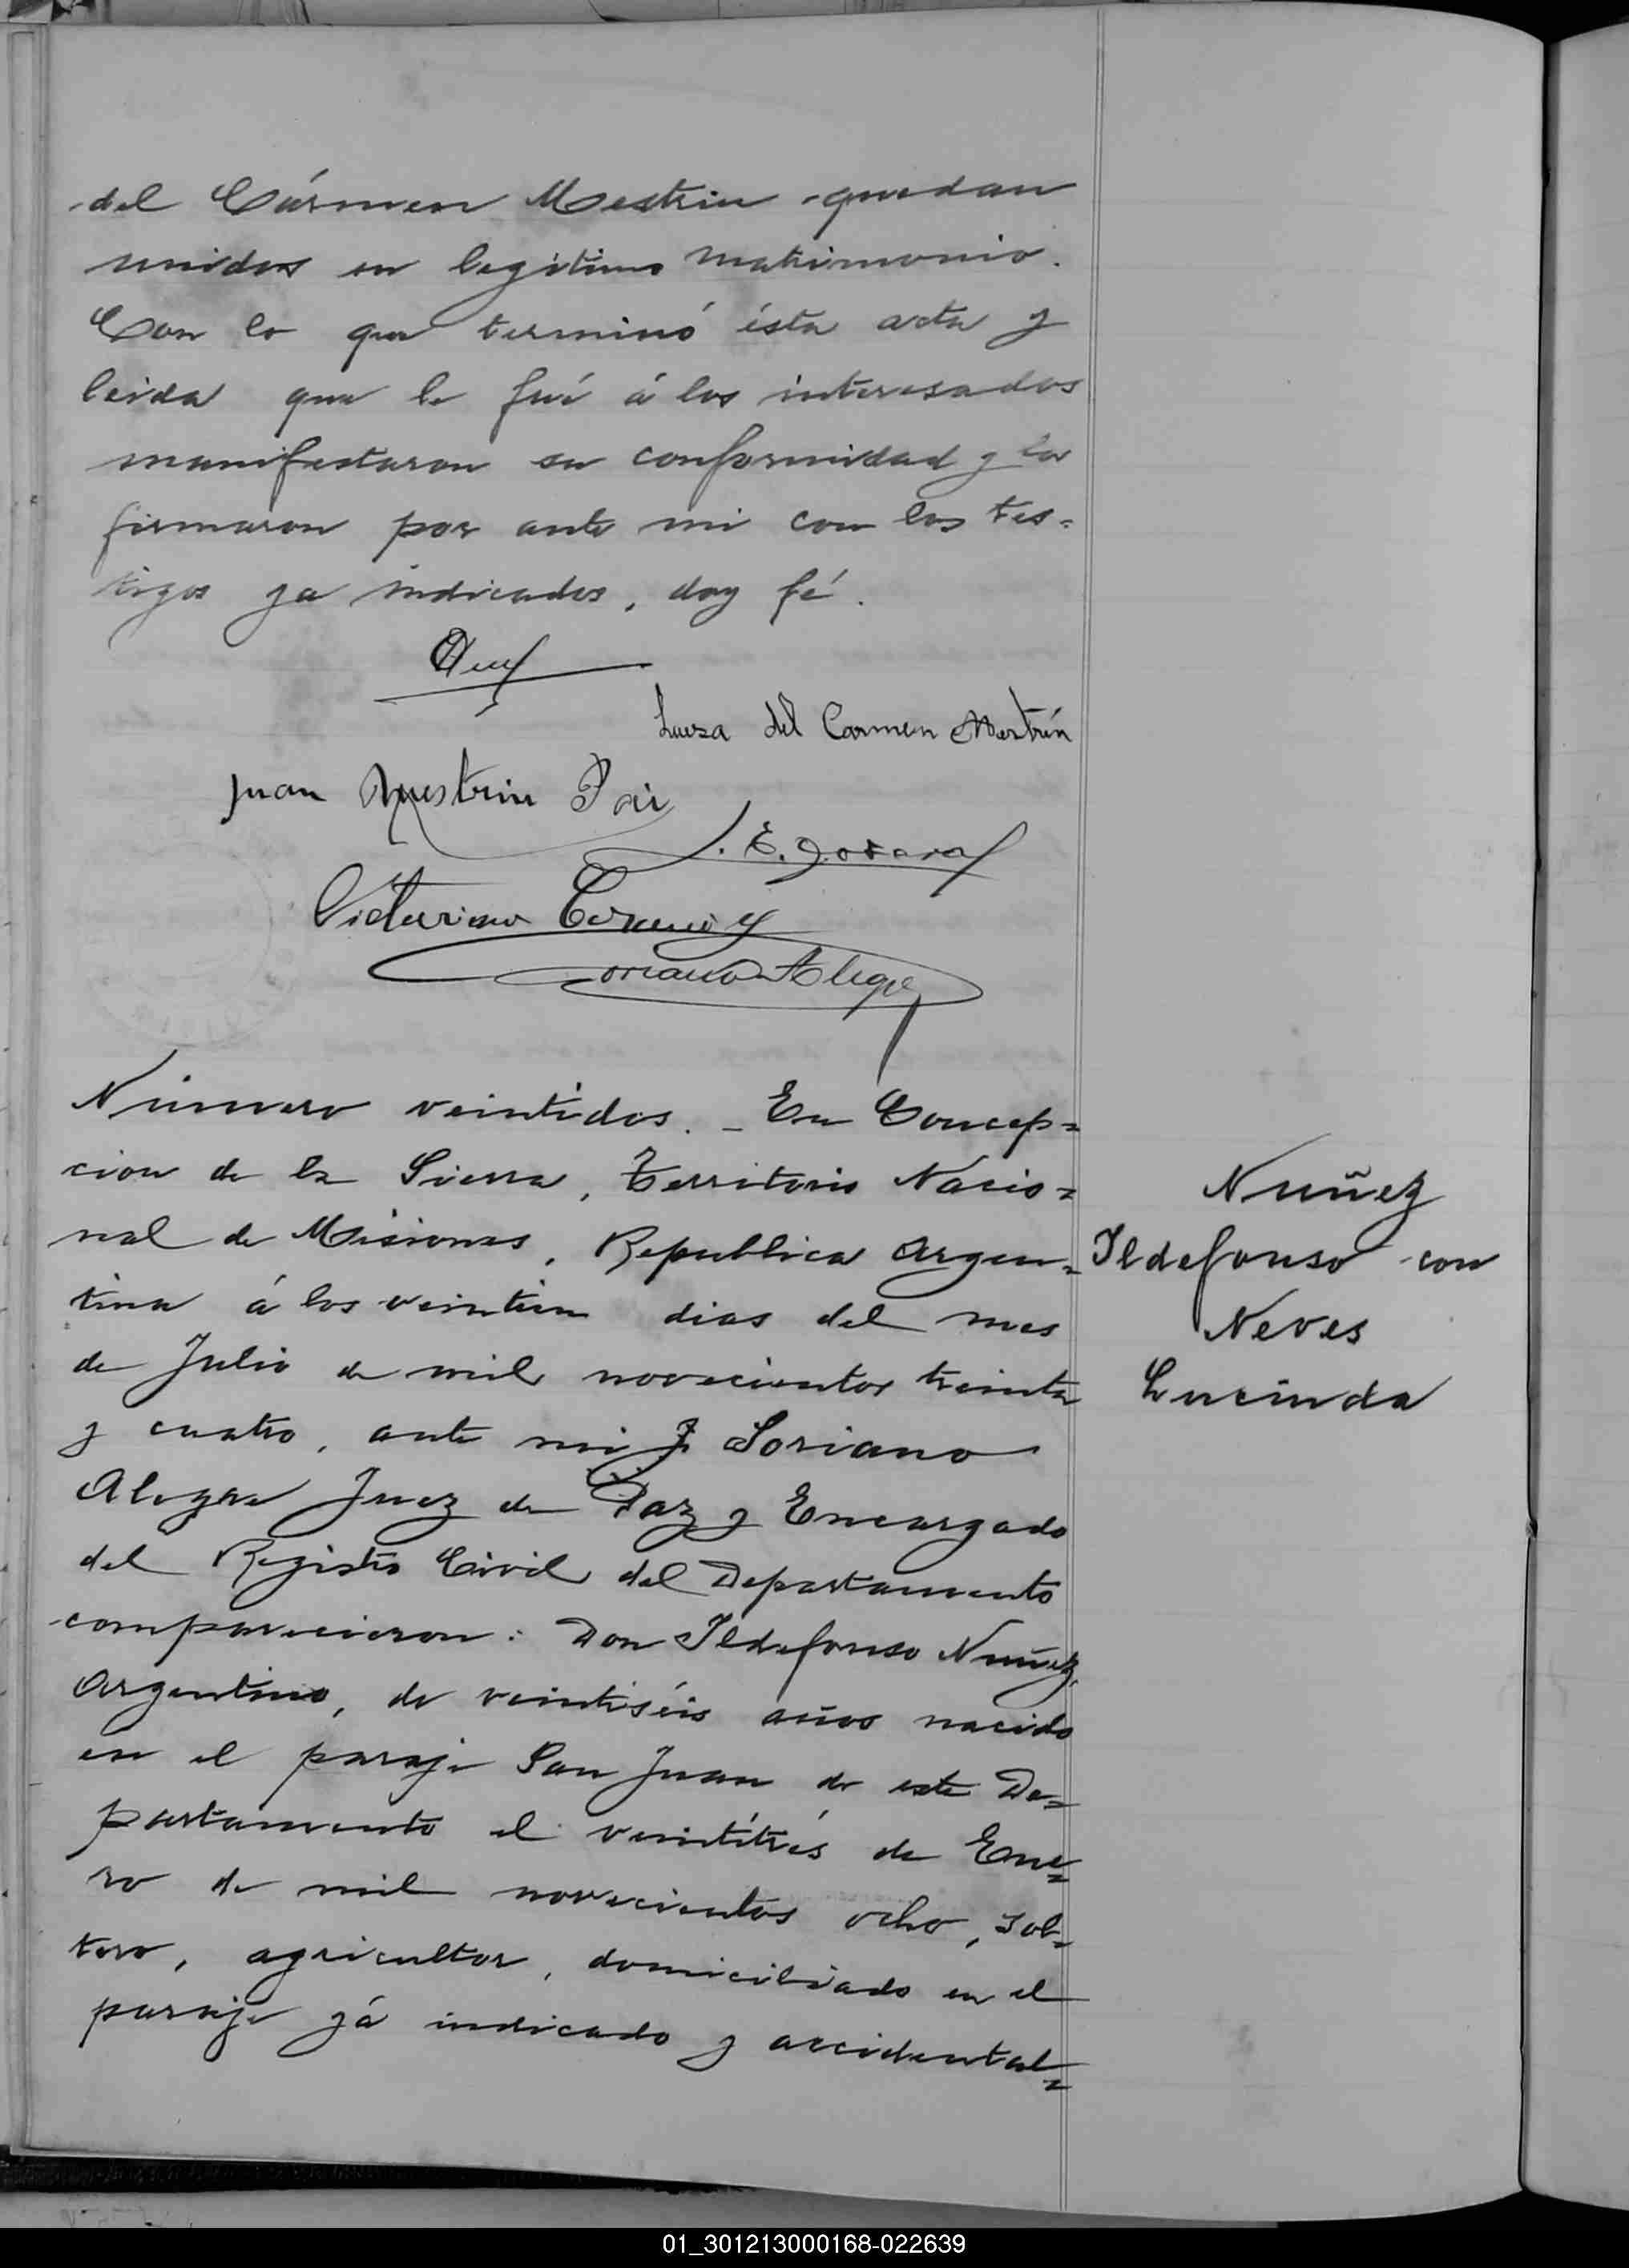 del Cármen Mestrin quedan
unidos en legitimo matrimonio.
Con lo que terminó ésta acta y
leida que le fué á los interesados
manifestaron su conformidad y la
firmaron por ante mi con los tes=
tigos ya indicados, doy fé.
Luisa del Carmen Mestrín
Juan Mestrin
Victoriano
Soriano Alegre
Número veintidos. _ En Concep=
cion de la Sierra, Territorio Nacio=
nal de Misiones, Republica Argen=
tina á los veintiun dias del mes
de Julio de mil novecientos treinta
y cuatro, ante mi J. Soriano
Alegre Juez de Paz y Encargado
del Registro Civil del Departamento
comparecieron: Don Ildefonso Nuñez,
Argentino, de veintiséis años nacido
en el paraje San Juan de este De=
partamento el veintitrés de Ene=
ro de mil novecientos ocho, sol=
tero, agricultor, domiciliado en el
paraje yá indicado y accidental=
Nuñez
Ildefonso con
Neves
Lucinda
01_301213000168-022639